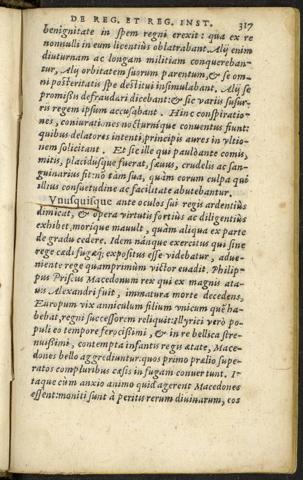 DE REG. ET REG. INST. 317
benignitate in spem regni erexit: qua ex re
nonnulli in eum licentiùs oblatrabant. Alij enim
diuturnam ac longam militiam conquereban-
tur, Alij orbitatem suorum parentum, & se om-
ni posteritatis spe destitui insimulabant. Alij se
promissis defraudari dicebant: & sic varijs susur-
ris regem ipsum accusabant. Hinc conspiratio-
nes, coniurationes nocturnique conuentus fiunt:
quibus delatores intenti, principis aures in vltio-
nem solicitant. Et sic ille qui paulò ante comis,
mitis, placidusque fuerat, sæuus, crudelis ac san-
guinarius fit: nõ tàm sua, quàm eorum culpa qui
illius consuetudine ac facilitate abutebantur.
Vnusquisque ante oculos sui regis ardentiùs
dimicat, & opera virtutis fortiùs ac diligentiùs
exhibet, morique mauult, quàm aliqua ex parte
de gradu cedere. Idem nanque exercitus qui sine
rege cædi fugæq; expositus esse videbatur, adue-
niente rege quamprimùm victor euadit. Philip-
pus Priscus Macedonum rex qui ex magnis ata-
uis Alexandri fuit, immatura morte decedens,
Europum vix anniculum filium vnicum què ha-
bebat, regni successorem reliquit: Illyrici verò po-
puli eo tempore ferocissimi, & in re bellica stre-
nuissimi, contempta infantis regis ætate, Mace-
dones bello aggrediuntur: quos primo prælio supe-
ratos compluribus cæsis in fugam conuertunt. I-
taque cùm anxio animo quid agerent Macedones
essent: moniti sunt à peritis rerum diuinarum, eos